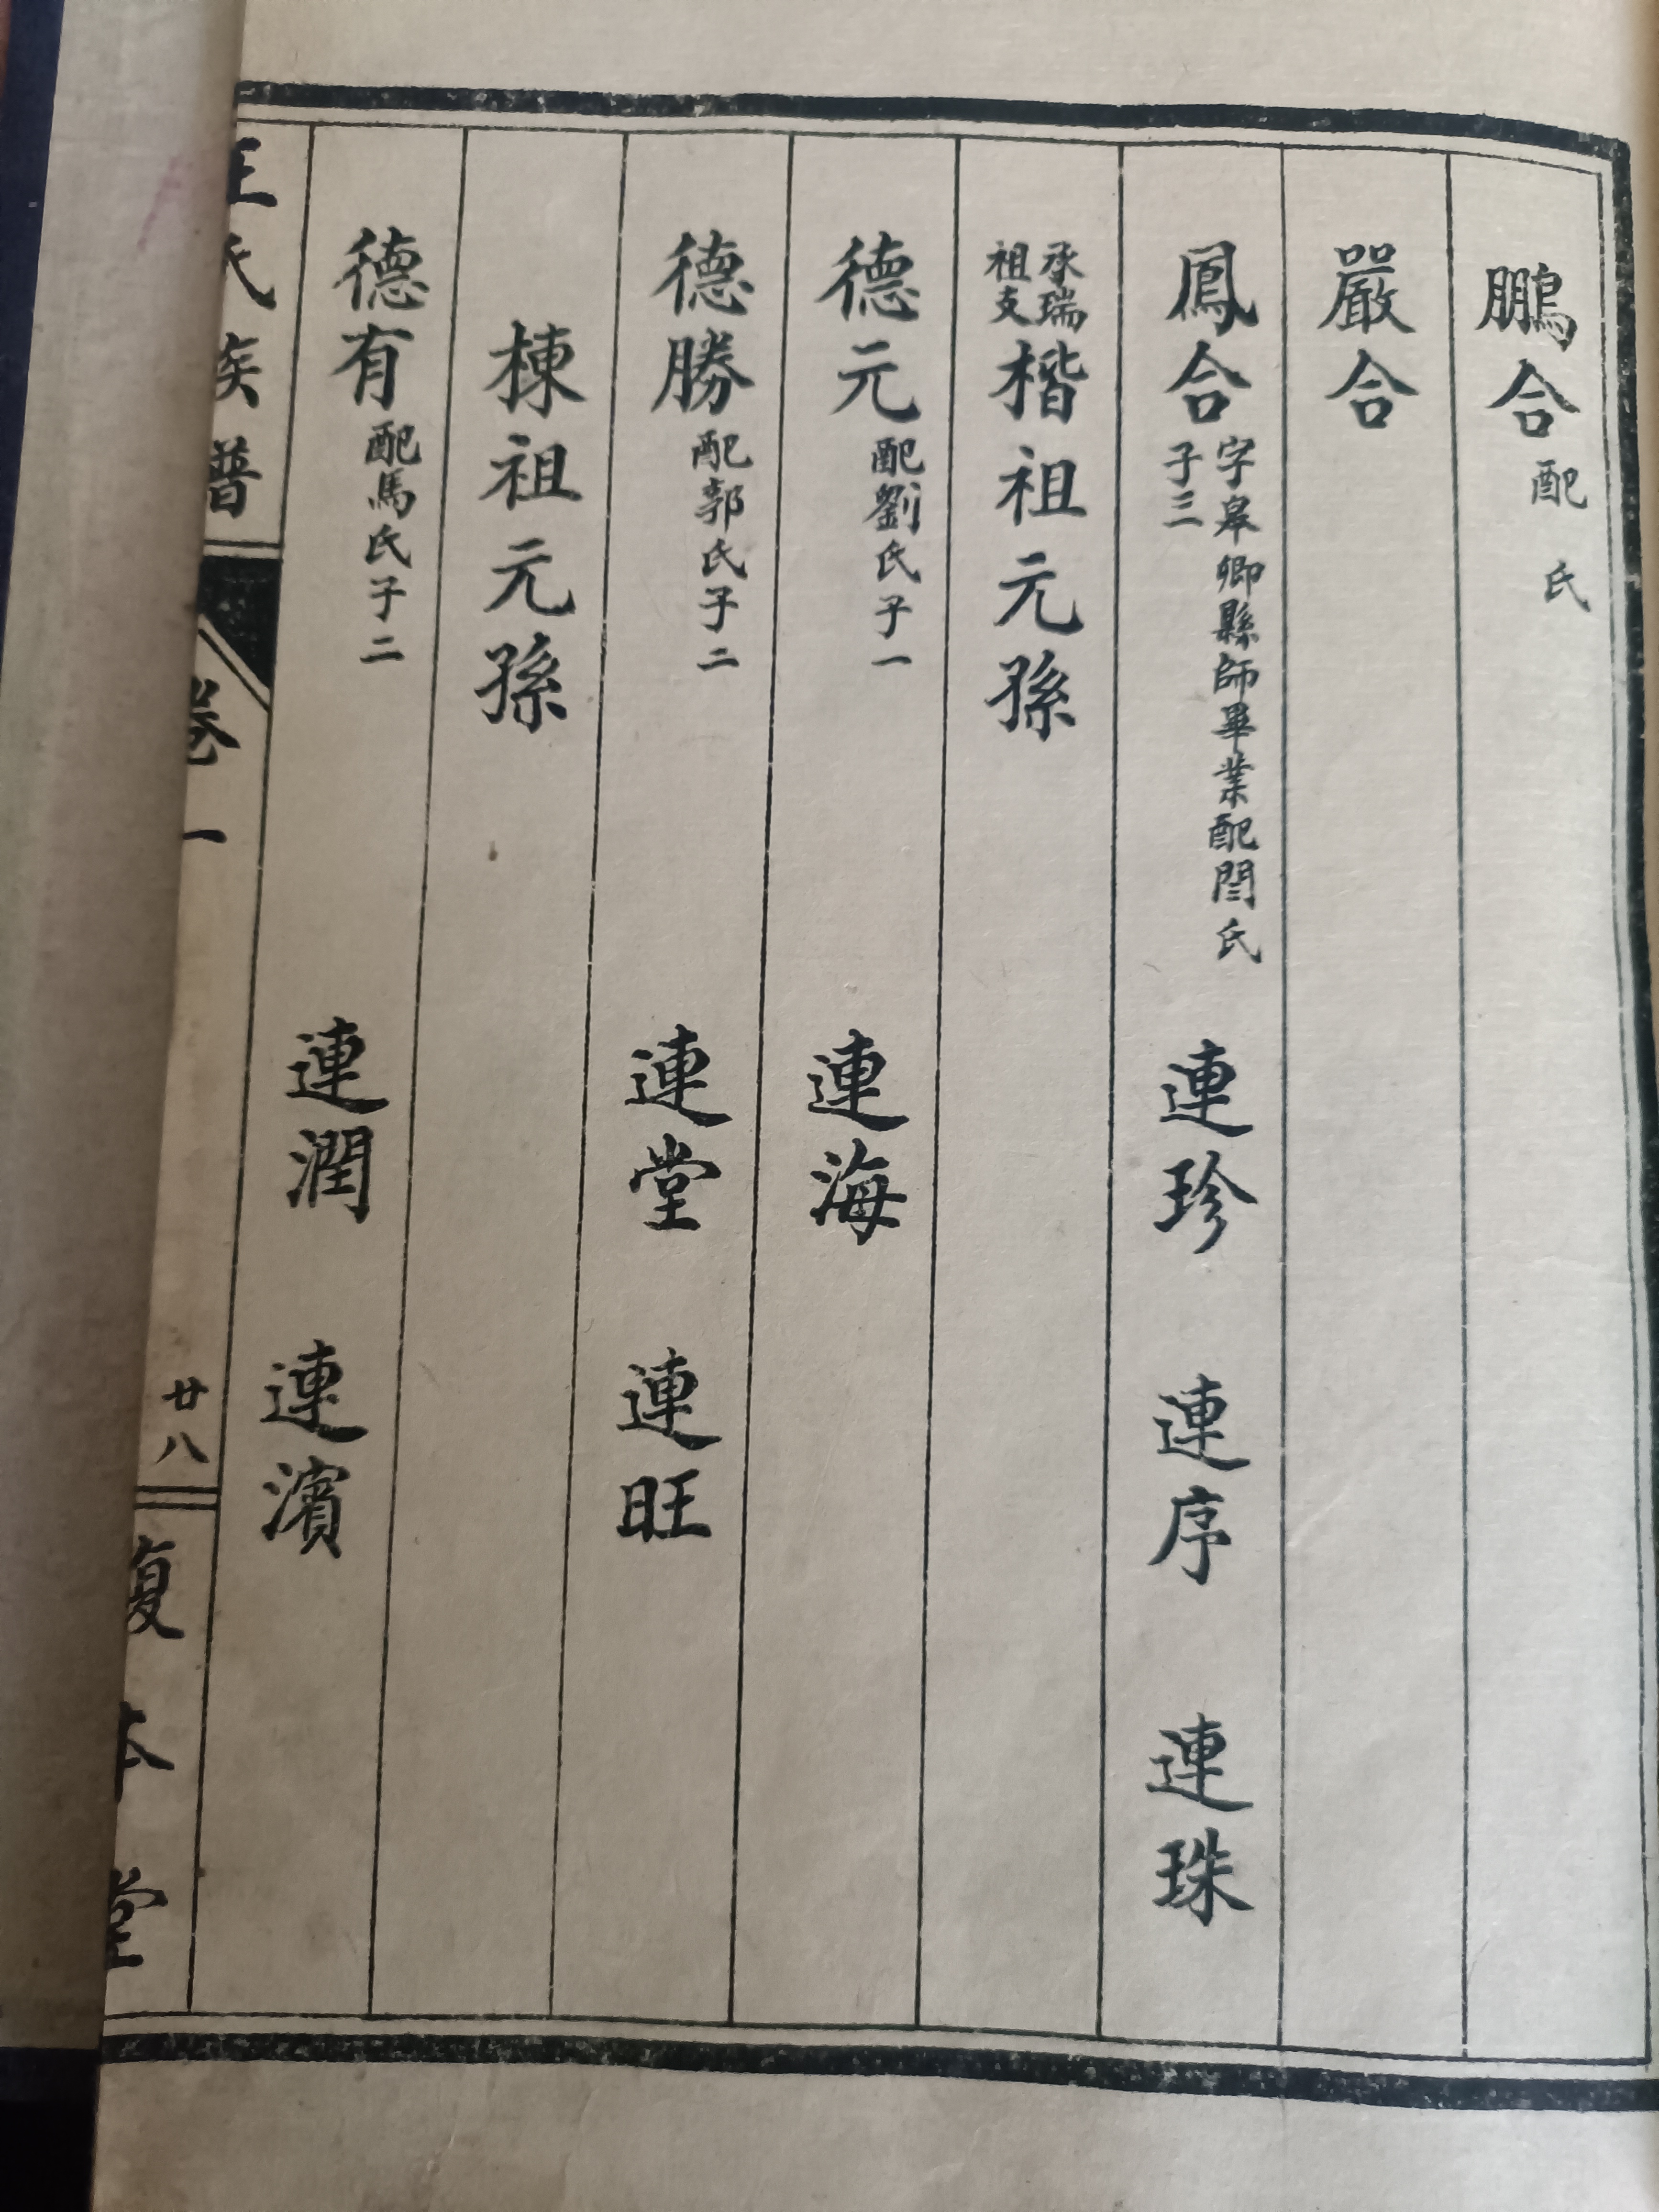 鵬合 配 氏
嚴合
鳳合 字皋卿縣師畢業配閻氏 子三 連珍 連序 連珠
承瑞祖支 楷祖元孫
德元 配劉氏子一 連海
德勝 配郭氏子二 連堂 連旺
棟祖元孫
德有 配馬氏子二 連潤 連濱
王氏族譜 卷一 廿八 復本堂